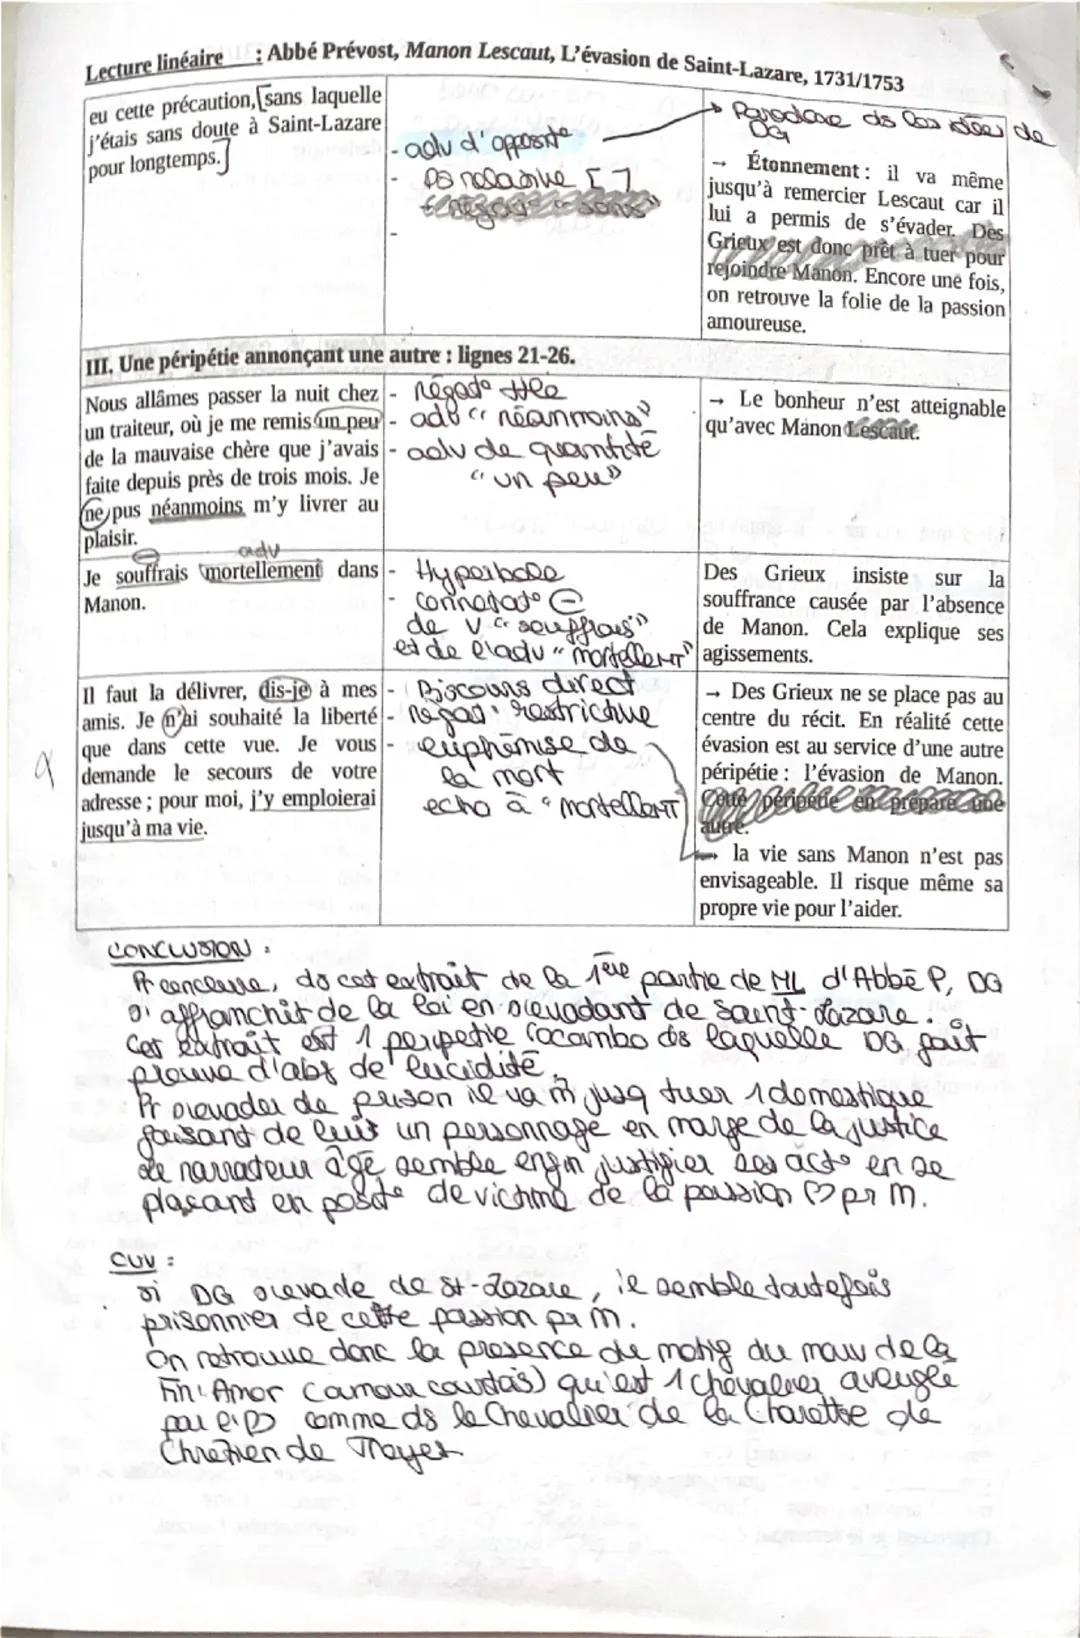 Lecture linéaire : Abbé Prévost, Manon Lescaut, L'évasion de Saint-Lazare, 1731/1753
eu cette précaution, [sans laquelle
j'étais sans doute à Saint-Lazare
pour longtemps.]
- adv d'opposit°
- PS relative [ ]
+ négat° "sans"
-
→ Paradoxe ds les idées de
DG
→ Étonnement : il va même
jusqu'à remercier Lescaut car il
lui a permis de s'évader. Des
Grieux est donc prêt à tuer pour
rejoindre Manon. Encore une fois,
on retrouve la folie de la passion
amoureuse.
III. Une péripétie annonçant une autre : lignes 21-26.
Nous allâmes passer la nuit chez
un traiteur, où je me remis un peu
de la mauvaise chère que j'avais
faite depuis près de trois mois. Je
ne pus néanmoins m'y livrer au
plaisir.
- négat° tlle
- adv "néanmoins"
- adv de quantité
"un peu"
→ Le bonheur n'est atteignable
qu'avec Manon Lescaut.
adv
Je souffrais mortellement dans
Manon.
- Hyperbole
- connotat° ⊖
de V "souffrais"
et de l'adv "mortelleMT"
Des Grieux insiste sur la
souffrance causée par l'absence
de Manon. Cela explique ses
agissements.
Il faut la délivrer, dis-je à mes
amis. Je n'ai souhaité la liberté
que dans cette vue. Je vous
demande le secours de votre
adresse ; pour moi, j'y emploierai
jusqu'à ma vie.
- Discours direct
- négat° restrictive
- euphémise de
la mort
echo à "mortelleMT"
→ Des Grieux ne se place pas au
centre du récit. En réalité cette
évasion est au service d'une autre
péripétie : l'évasion de Manon.
Cette péripétie en prépare une
autre.
→ la vie sans Manon n'est pas
envisageable. Il risque même sa
propre vie pour l'aider.
CONCLUSION :
Pr conclure, ds cet extrait de la 1ère partie de ML d'Abbé P, DG
s'affranchit de la loi en s'evadant de Saint-Lazare.
Cet extrait est 1 peripetie rocambo ds laquelle DG fait
preuve d'abs de lucidité.
Pr s'evader de prison il va m̂ jusq tuer 1 domestique
faisant de lui un personnage en marge de la justice
Le narrateur âgé semble enfin justifier ses acts en se
plaçant en posit° de victime de la passion ♡ pr M.
OUV :
si DG s'evade de St-Lazare, il semble toutefois
prisonnier de cette passion pr M.
On retrouve donc la presence de motif du de la
Fin'Amor (amour courtois) qu'est 1 chevalier aveuglé
par l'♡ comme ds le Chevalier de la Charette de
Chretien de Troyes